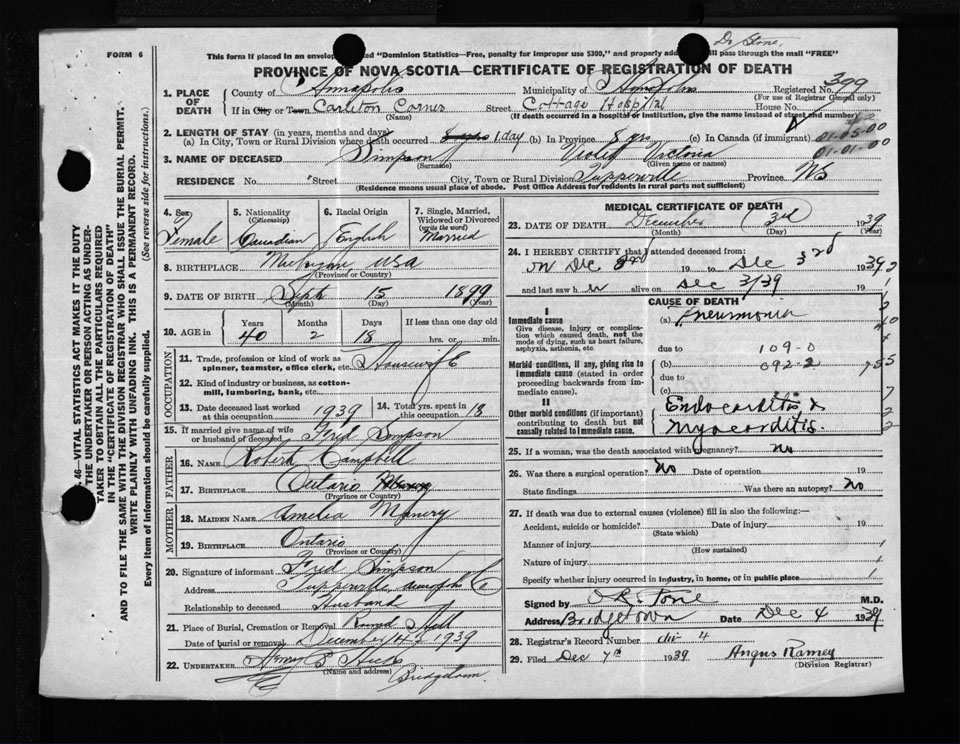 Dr Stone,
FORM 6
This form if placed in an envelope "Dominion Statistics—Free, penalty for improper use $300," and properly pass through the mail "FREE"
PROVINCE OF NOVA SCOTIA—CERTIFICATE OF REGISTRATION OF DEATH
1. PLACE OF DEATH
County of Annapolis Municipality of Annapolis Registered No. 399
(For use of Registrar General only)
If in City or Town Carleton Corner Street Cottage Hospital House No.
(Name) (If death occurred in a hospital or institution, give the name instead of street and number)
2. LENGTH OF STAY (in years, months and days)
(a) In City, Town or Rural Division where death occurred 1 day (b) In Province 8 yrs (c) In Canada (if immigrant) 01-05-00
01-01-00
3. NAME OF DECEASED Simpson Violet Victoria
(Surname) (Given name or names)
RESIDENCE No. Street City, Town or Rural Division Tupperville Province NS
(Residence means usual place of abode. Post Office Address for residents in rural parts not sufficient)
4. Sex Female
5. Nationality (Citizenship) Canadian
6. Racial Origin English
7. Single, Married, Widowed or Divorced (write the word) Married
8. BIRTHPLACE Michigan USA
(Province or Country)
9. DATE OF BIRTH Sept 15 1899
(Month) (Day) (Year)
10. AGE in Years Months Days If less than one day
40 2 18 hrs. or min.
OCCUPATION
11. Trade, profession or kind of work as spinner, teamster, office clerk, etc. Housewife
12. Kind of industry or business, as cotton-mill, lumbering, bank, etc.
13. Date deceased last worked at this occupation 1939
14. Total yrs. spent in this occupation 18
15. If married give name of wife or husband of deceased Fred Simpson
FATHER
16. NAME Robert Campbell
17. BIRTHPLACE Ontario
(Province or Country)
MOTHER
18. MAIDEN NAME Amelia
19. BIRTHPLACE Ontario
(Province or Country)
20. Signature of informant Fred Simpson
Address Tupperville Annapolis Co
Relationship to deceased Husband
21. Place of Burial, Cremation or Removal Round Hill
Date of burial or removal December 4 1939
22. UNDERTAKER Hicks
(Name and address) Bridgetown.
MEDICAL CERTIFICATE OF DEATH
23. DATE OF DEATH December 3rd 1939
(Month) (Day) (Year)
24. I HEREBY CERTIFY that I attended deceased from:
on Dec 3rd 19 to Dec 3rd 1939
and last saw h er alive on Dec 3/39 19
CAUSE OF DEATH
I
Immediate cause
Give disease, injury or complication which caused death, not the mode of dying, such as heart failure, asphyxia, asthenia, etc.
(a) Pneumonia
due to 109-0
Morbid conditions, if any, giving rise to immediate cause (stated in order proceeding backwards from immediate cause).
(b) 092-2
due to
(c)
II
Other morbid conditions (if important) contributing to death but not causally related to immediate cause.
Endocarditis &
Myocarditis.
25. If a woman, was the death associated with pregnancy? No
26. Was there a surgical operation? No Date of operation 19
State findings Was there an autopsy? No
27. If death was due to external causes (violence) fill in also the following:—
Accident, suicide or homicide? Date of injury 19
(State which)
Manner of injury
(How sustained)
Nature of injury
Specify whether injury occurred in industry, in home, or in public place
Signed by Stone M.D.
Address Bridgetown Date Dec 4 1939
28. Registrar's Record Number div 4
29. Filed Dec 7th 1939 Angus Ramey
(Division Registrar)
46—VITAL STATISTICS ACT MAKES IT THE DUTY
THE UNDERTAKER OR PERSON ACTING AS UNDER-
TAKER TO OBTAIN ALL THE PARTICULARS REQUIRED
IN THE "CERTIFICATE OF REGISTRATION OF DEATH"
AND TO FILE THE SAME WITH THE DIVISION REGISTRAR WHO SHALL ISSUE THE BURIAL PERMIT.
WRITE PLAINLY WITH UNFADING INK. THIS IS A PERMANENT RECORD.
Every item of information should be carefully supplied. (See reverse side for instructions.)